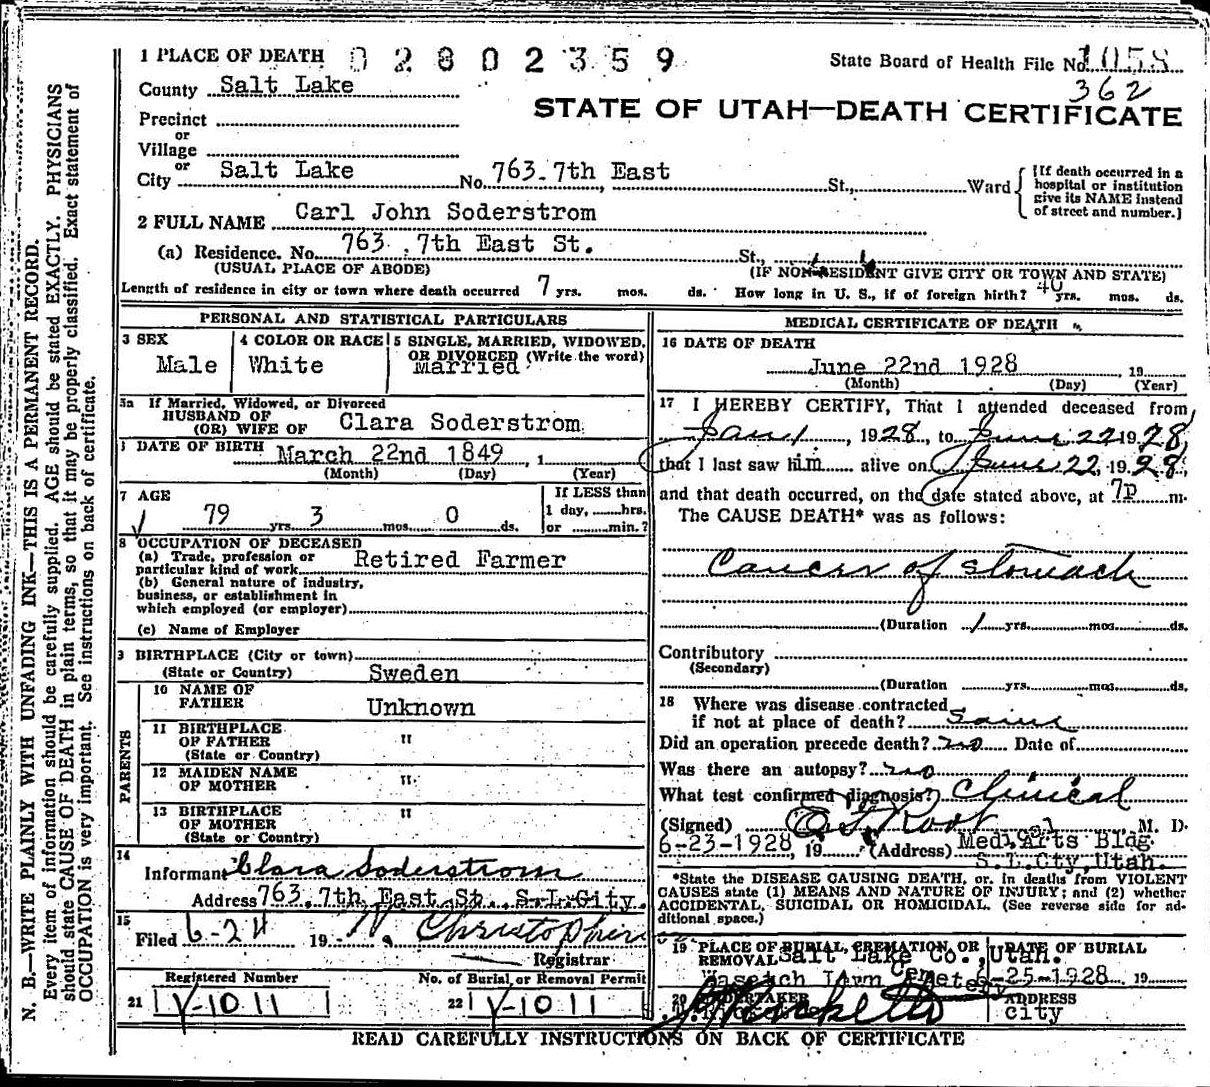 1 PLACE OF DEATH 02802359 State Board of Health File No. 1058
County Salt Lake 362
STATE OF UTAH—DEATH CERTIFICATE
Precinct
or
Village
or
City Salt Lake No. 763. 7th East St., Ward {[If death occurred in a hospital or institution give its NAME instead of street and number.]
2 FULL NAME Carl John Soderstrom
(a) Residence. No. 763. 7th East St. St.,
(USUAL PLACE OF ABODE) (IF NON-RESIDENT GIVE CITY OR TOWN AND STATE)
Length of residence in city or town where death occurred 7 yrs. mos. ds. How long in U. S., if of foreign birth? 40 yrs. mos. ds.
PERSONAL AND STATISTICAL PARTICULARS
3 SEX
Male
4 COLOR OR RACE
White
5 SINGLE, MARRIED, WIDOWED,
OR DIVORCED (Write the word)
Married
5a If Married, Widowed, or Divorced
HUSBAND OF
(OR) WIFE OF Clara Soderstrom
DATE OF BIRTH March 22nd 1849, 1
(Month) (Day) (Year)
7 AGE
79 yrs. 3 mos. 0 ds.
If LESS than
1 day, hrs.
or min.?
8 OCCUPATION OF DECEASED
(a) Trade, profession or
particular kind of work Retired Farmer
(b) General nature of industry,
business, or establishment in
which employed (or employer)
(c) Name of Employer
9 BIRTHPLACE (City or town)
(State or Country) Sweden
PARENTS
10 NAME OF
FATHER Unknown
11 BIRTHPLACE
OF FATHER "
(State or Country)
12 MAIDEN NAME
OF MOTHER "
13 BIRTHPLACE
OF MOTHER "
(State or Country)
14
Informant Clara Soderstrom
Address 763. 7th East St. S.L.City.
15
Filed 6-24 19 Christopher
Registrar
Registered Number
21 Y-1011
No. of Burial or Removal Permit
22 Y-1011
MEDICAL CERTIFICATE OF DEATH
16 DATE OF DEATH
June 22nd 1928, 19
(Month) (Day) (Year)
17 I HEREBY CERTIFY, That I attended deceased from
Jan 1, 1928, to June 22 1928,
that I last saw him alive on June 22, 1928,
and that death occurred, on the date stated above, at 7p m.
The CAUSE DEATH* was as follows:
Cancer of Stomach
(Duration 1 yrs. mos. ds.
Contributory
(Secondary)
(Duration yrs. mos. ds.
18 Where was disease contracted
if not at place of death? Same
Did an operation precede death? no Date of
Was there an autopsy? no
What test confirmed diagnosis? Clinical
(Signed) Root M. D.
6-23-1928, 19 (Address) Med. Arts Bldg.
S.L.Cty, Utah.
*State the DISEASE CAUSING DEATH, or, in deaths from VIOLENT
CAUSES state (1) MEANS AND NATURE OF INJURY; and (2) whether
ACCIDENTAL, SUICIDAL OR HOMICIDAL. (See reverse side for ad-
ditional space.)
19 PLACE OF BURIAL, CREMATION, OR
REMOVAL Salt Lake Co., Utah.
Wasatch Lawn Cemetery
DATE OF BURIAL
6-25-1928 19
20 UNDERTAKER
ADDRESS
city
READ CAREFULLY INSTRUCTIONS ON BACK OF CERTIFICATE
N. B.—WRITE PLAINLY WITH UNFADING INK—THIS IS A PERMANENT RECORD.
Every item of information should be carefully supplied. AGE should be stated EXACTLY. PHYSICIANS
should state CAUSE OF DEATH in plain terms, so that it may be properly classified. Exact statement of
OCCUPATION is very important. See instructions on back of certificate.